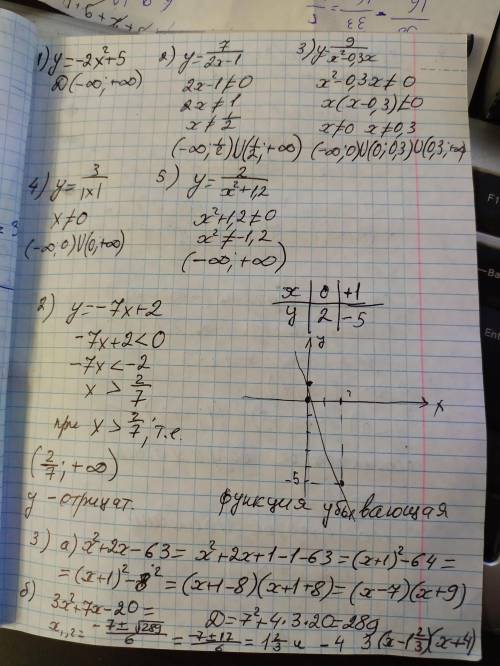 1) y=-2x²+5
D(-∞;+∞)
2) y=7/(2x-1)
2x-1≠0
2x≠1
x≠1/2
(-∞;1/2)U(1/2;+∞)
3) y=9/(x²-0,3x)
x²-0,3x≠0
x(x-0,3)≠0
x≠0 x≠0,3
(-∞;0)U(0;0,3)U(0,3;+∞)
4) y=3/|x|
x≠0
(-∞;0)U(0;+∞)
5) y=2/(x²+1,2)
x²+1,2≠0
x²≠-1,2
(-∞;+∞)
2) y=-7x+2
-7x+2<0
-7x<-2
x>2/7
при x>2/7; т.е.
(2/7;+∞)
y-отрицат.
x 0 +1
y 2 -5
y
x
-5
функция убывающая
3) а) x²+2x-63= x²+2x+1-1-63=(x+1)²-64=
=(x+1)²-8²=(x+1-8)(x+1+8)=(x-7)(x+9)
б) 3x²+7x-20=
D=7²+4·3·20=289
x₁,₂=(-7±√289)/6=(-7±17)/6=1 2/3 и -4 3(x-1 2/3)(x+4)